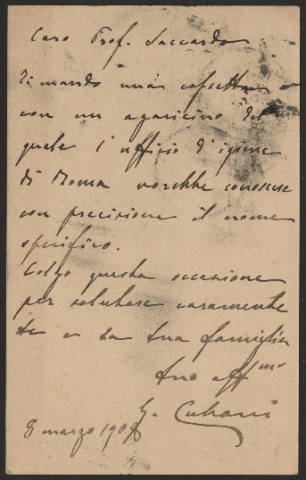 Caro Prof. Saccardo
Ti mando una cassetta
con un agaricino del
quale l'ufficio d'igiene
di Roma vorebbe conoscere
con precisione il nome
specifico.
Colgo questa occasione
per salutare caramente
te e la tua famiglia
tuo aff.mo
G. Cuboni
8 marzo 1908